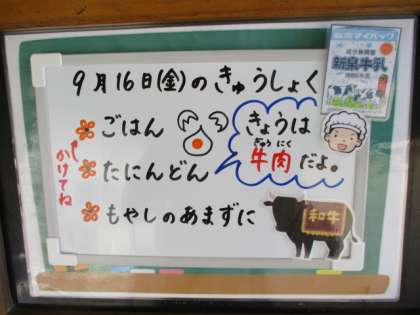 9月16日(金)のきゅうしょく
ごはん
かけてね
たにんどん
もやしのあまずに
きょうは
ぎゅうにく
牛肉だよ。
和牛
新泉牛乳